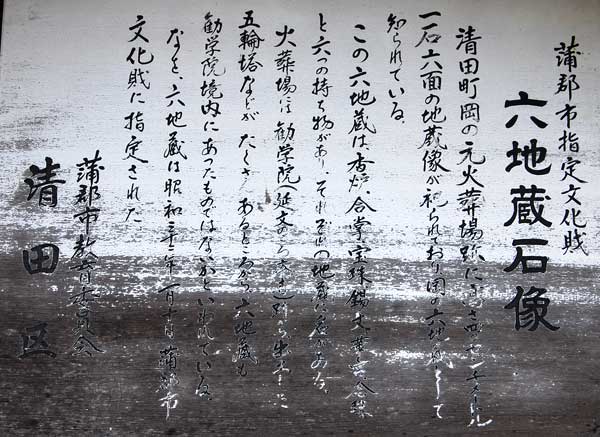 蒲郡市指定文化財
六地蔵石像
清田町岡の元火葬場跡に 高さ四七センチメートル
一石六面の地蔵像が祀られており岡の六地蔵として
知られている。
この六地蔵は、香炉、合掌、宝珠、錫丈、華 念珠
と六つの持ち物があり、それぞれの地蔵に
火葬場は勧学院(延文のころ )跡から出土した
五輪塔などがたくさんあるところから、六地蔵も
勧学院境内にあったものではないかといわれている。
なお、六地蔵は昭和三十 年一月十日 蒲郡市
文化財に指定された
蒲郡市教育委員会
清田区